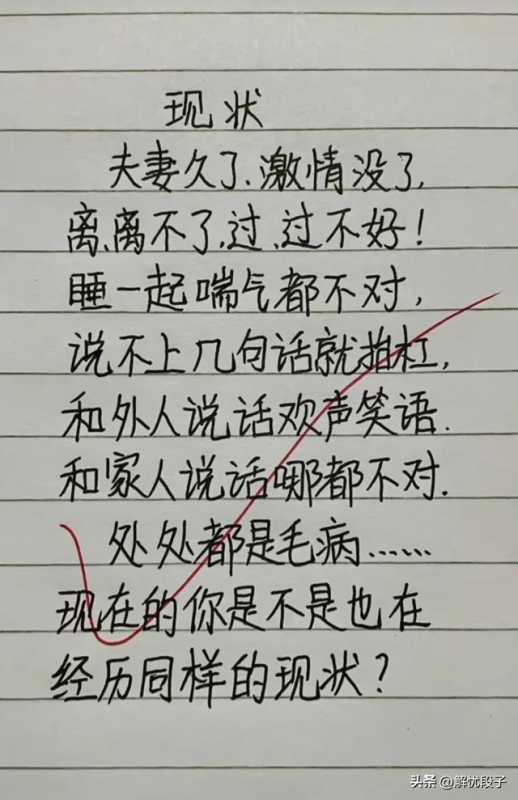 现状
夫妻久了.激情没了,
离,离不了,过,过不好!
睡一起喘气都不对,
说不上几句话就抬杠,
和外人说话欢声笑语.
和家人说话哪都不对.
处处都是毛病……
现在的你是不是也在
经历同样的现状?
头条 @解忧段子